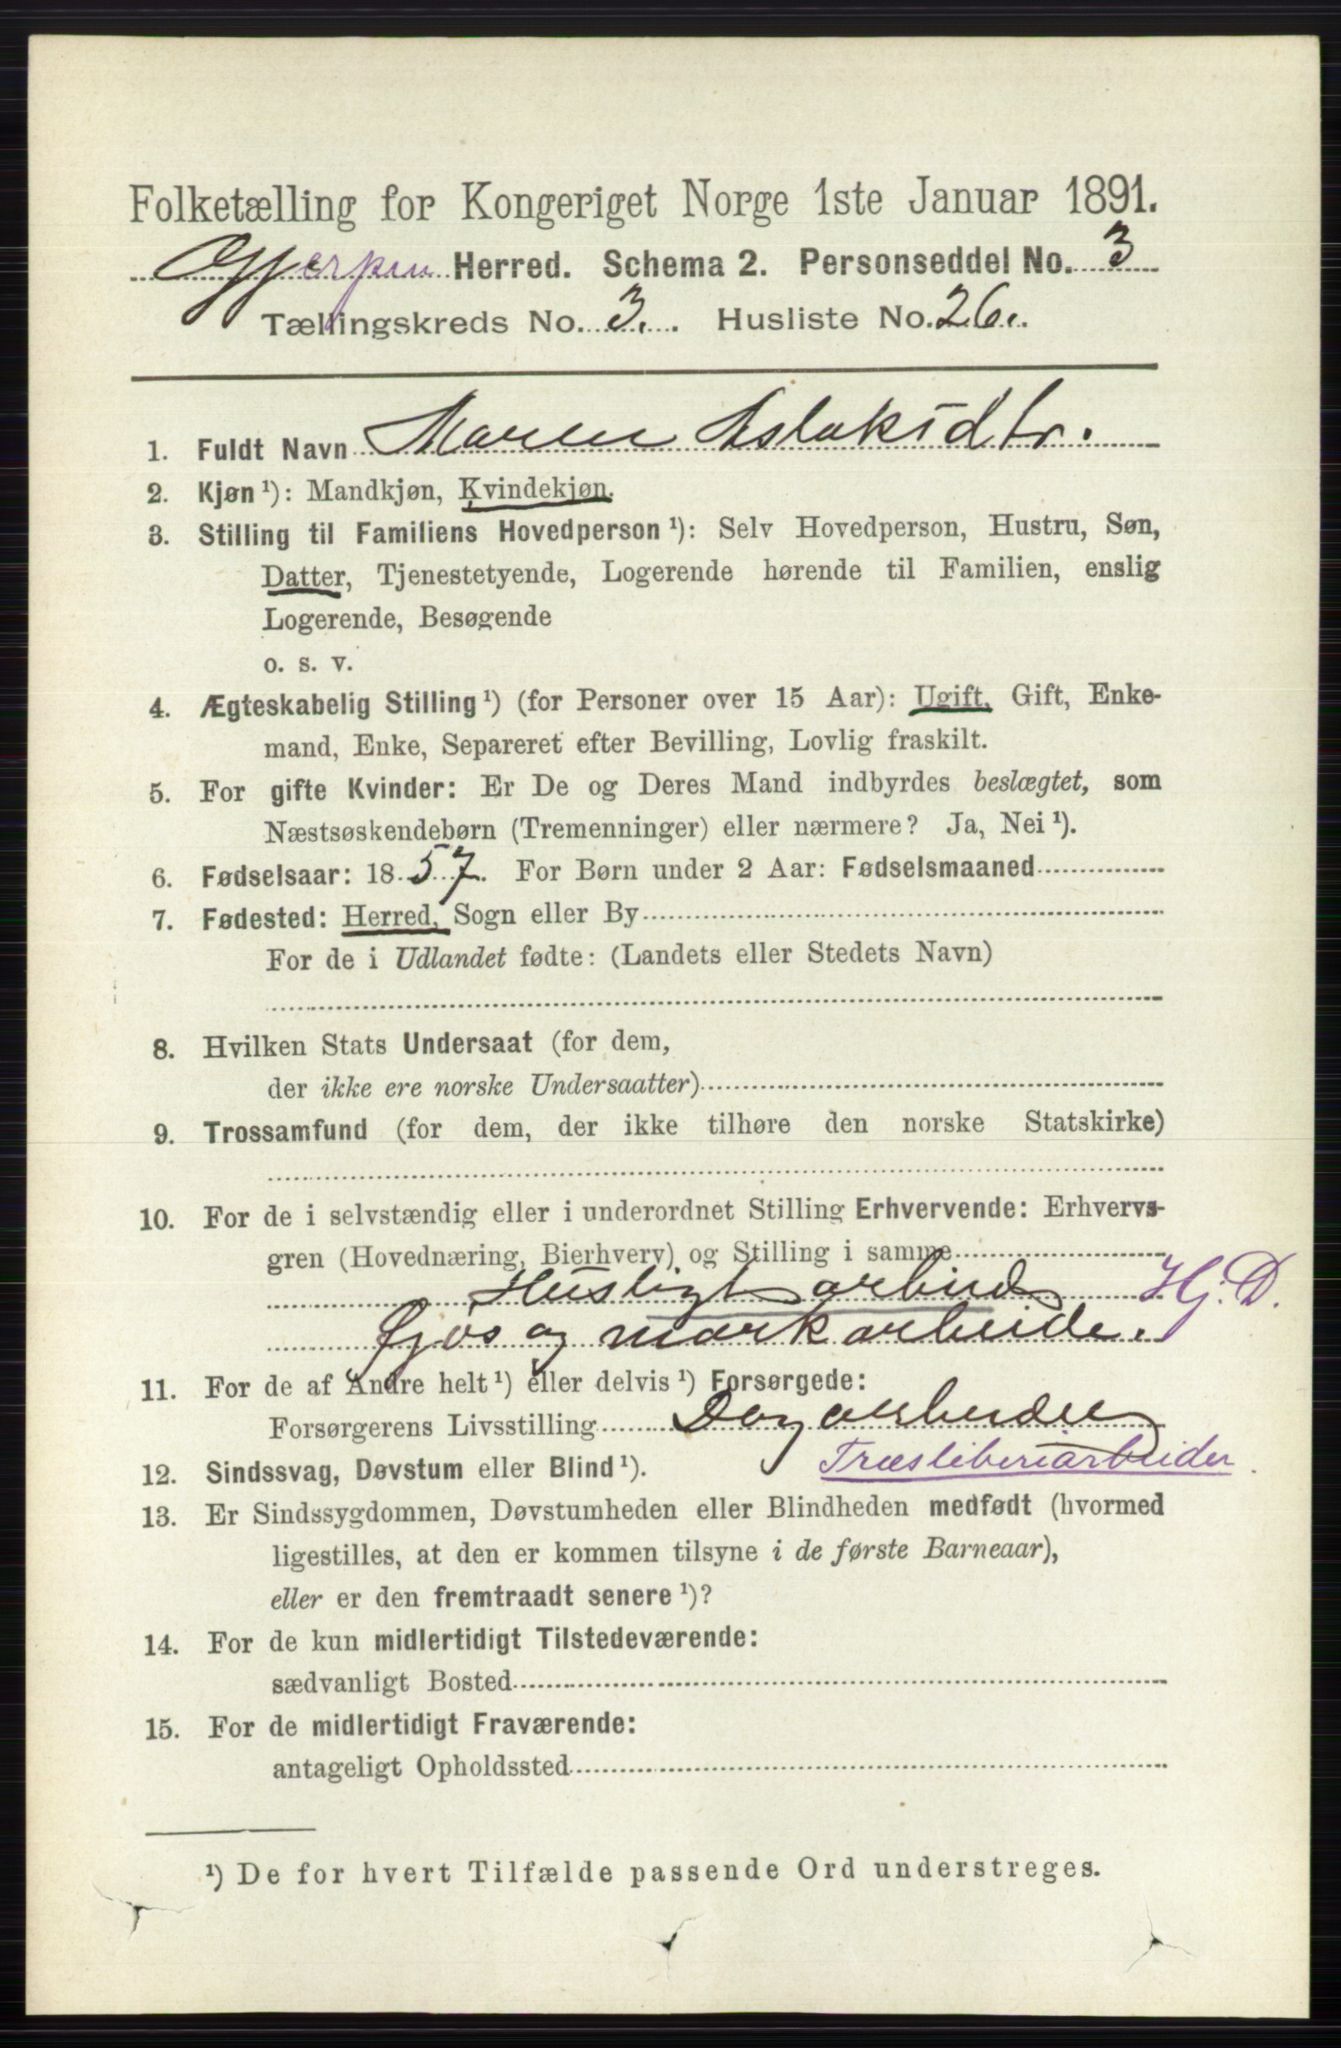 Folketælling for Kongeriget Norge 1ste Januar 1891.
Gjerpen Herred. Schema 2. Personseddel No. 3
Tællingskreds No. 3. Husliste No. 26.
1. Fuldt Navn Maren Aslaksdtr.
2. Kjøn ¹): Mandkjøn, Kvindekjøn.
3. Stilling til Familiens Hovedperson ¹): Selv Hovedperson, Hustru, Søn,
Datter, Tjenestetyende, Logerende hørende til Familien, enslig
Logerende, Besøgende
o. s. v.
4. Ægteskabelig Stilling ¹) (for Personer over 15 Aar): Ugift, Gift, Enke-
mand, Enke, Separeret efter Bevilling, Lovlig fraskilt.
5. For gifte Kvinder: Er De og Deres Mand indbyrdes beslægtet, som
Næstsøskendebørn (Tremenninger) eller nærmere? Ja, Nei ¹).
6. Fødselsaar: 1857. For Børn under 2 Aar: Fødselsmaaned
7. Fødested: Herred, Sogn eller By
For de i Udlandet fødte: (Landets eller Stedets Navn)
8. Hvilken Stats Undersaat (for dem,
der ikke ere norske Undersaatter)
9. Trossamfund (for dem, der ikke tilhøre den norske Statskirke)
10. For de i selvstændig eller i underordnet Stilling Erhvervende: Erhvervs-
gren (Hovednæring, Bierhverv) og Stilling i samme
Husligt arbeid Hj. D.
Fjøs og markarbeide.
11. For de af Andre helt ¹) eller delvis ¹) Forsørgede:
Forsørgerens Livsstilling Dagarbeider
Træsliberiarbeider
12. Sindssvag, Døvstum eller Blind ¹).
13. Er Sindssygdommen, Døvstumheden eller Blindheden medfødt (hvormed
ligestilles, at den er kommen tilsyne i de første Barneaar),
eller er den fremtraadt senere ¹)?
14. For de kun midlertidigt Tilstedeværende:
sædvanligt Bosted
15. For de midlertidigt Fraværende:
antageligt Opholdssted
¹) De for hvert Tilfælde passende Ord understreges.